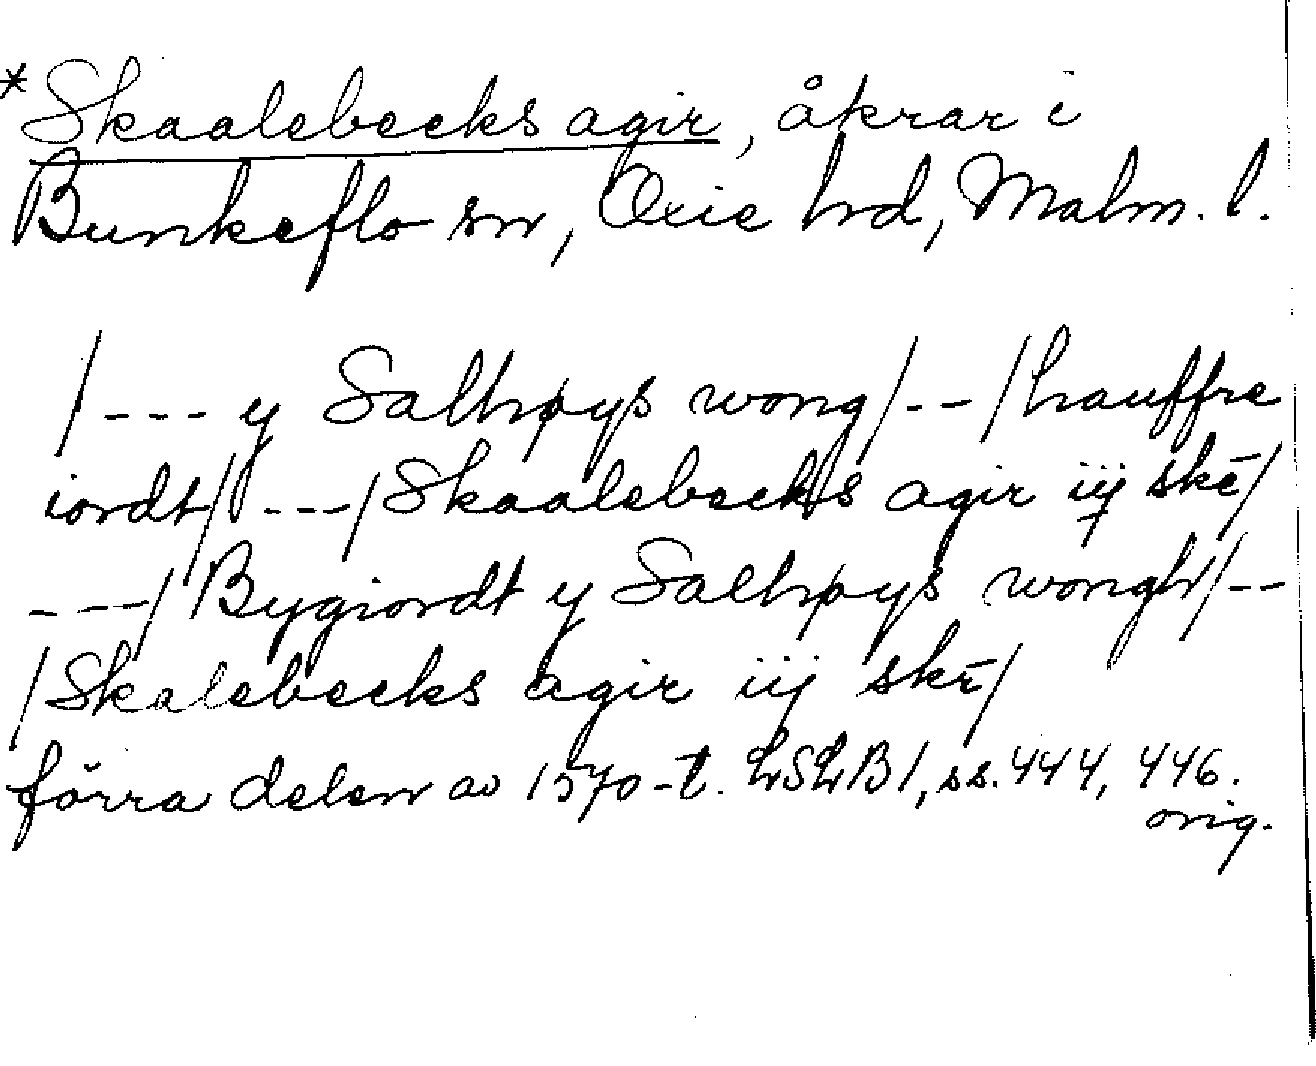 *Skaalebecks agir, åkrar i
Bunkeflo sn, Oxie hrd, Malm. l.
/--- y Salhøys wong/--/hauffre
iordt/---/Skaalebecks agir iij skē/
---/Bygiordt y Salhøys wongh/--
/Skalebecks agir iij skē/
förra delen av 1570-t. LSLB1, ss. 444, 446.
orig.